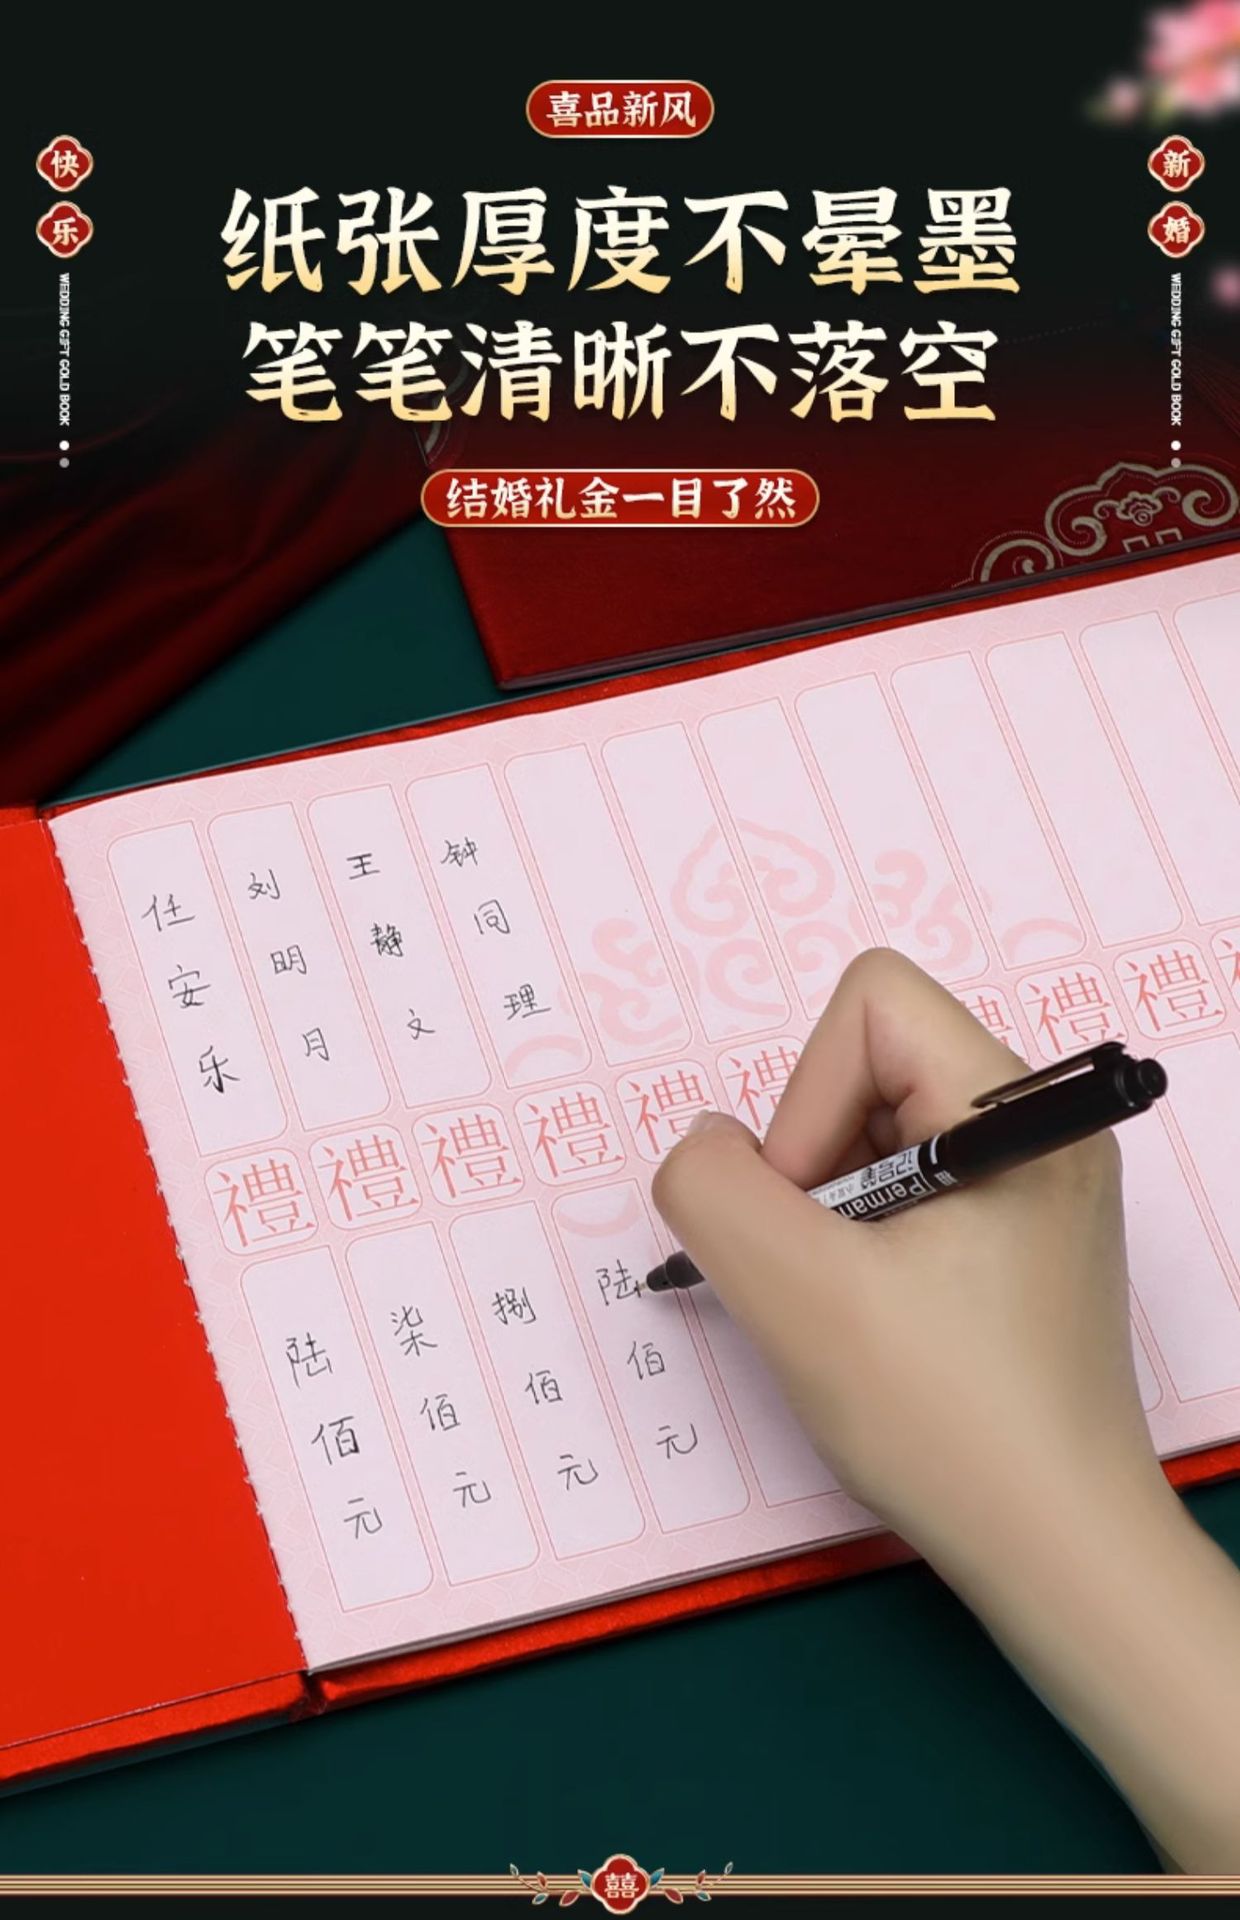 喜品新风
快乐
新婚
纸张厚度不晕墨
笔笔清晰不落空
WEDDING GIFT GOLD BOOK
WEDDING GIFT GOLD BOOK
结婚礼金一目了然
任安乐
刘明月
王静文
钟同理
禮 禮 禮 禮 禮 禮 禮 禮 禮
陆佰元
柒佰元
捌佰元
陆佰元
记号笔
Perman
囍